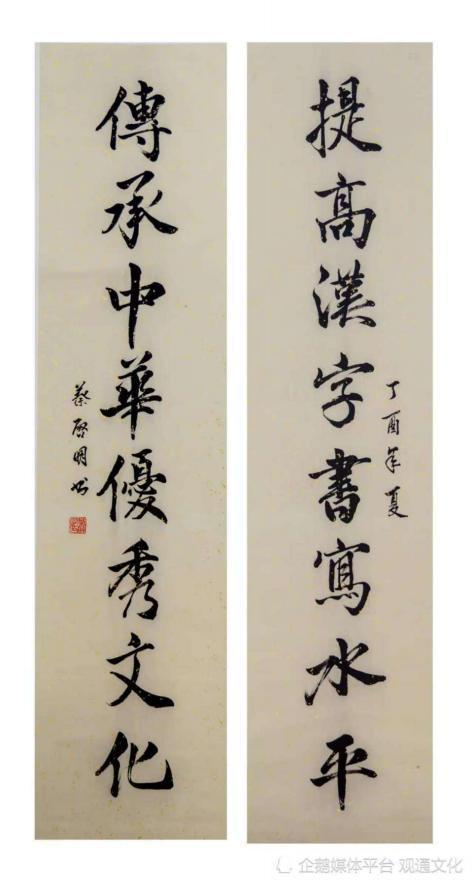 提高漢字書寫水平
丁酉年夏
傳承中華優秀文化
蔡啓明书
企鹅媒体平台 观通文化